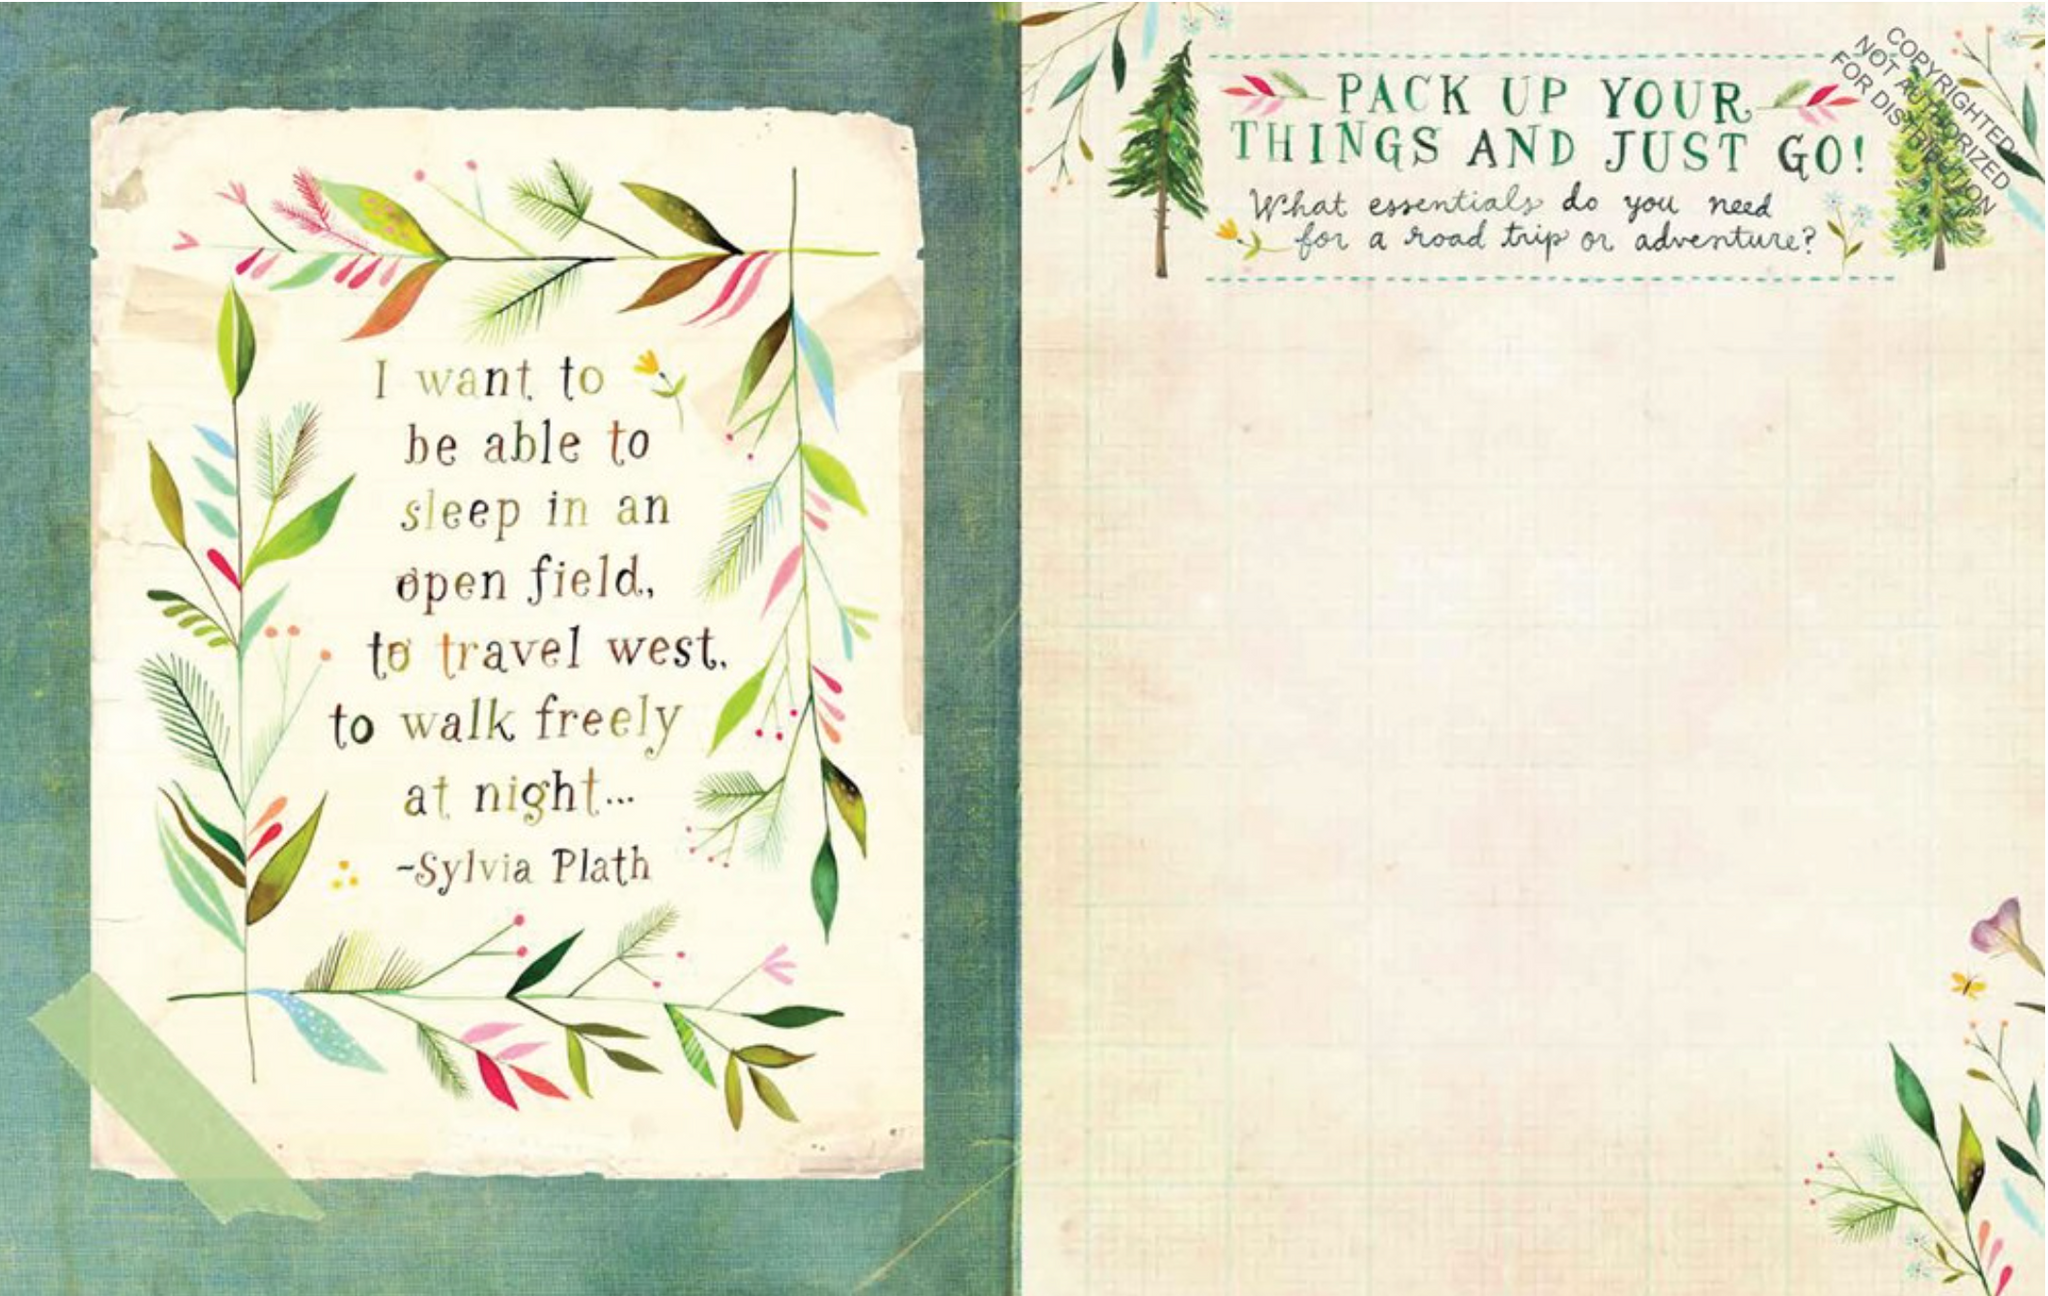 I want to
be able to
sleep in an
open field,
to travel west,
to walk freely
at night...
~Sylvia Plath
PACK UP YOUR
THINGS AND JUST GO!
What essentials do you need
for a road trip or adventure?
COPYRIGHTED
NOT AUTHORIZED
FOR DISTRIBUTION